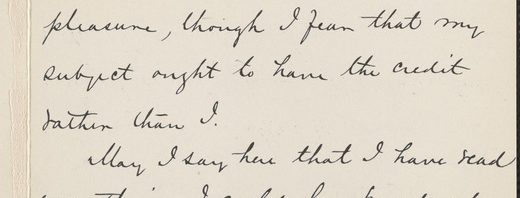 pleasure, though I fear that my
subject ought to have the credit
rather than I.
May I say here that I have read